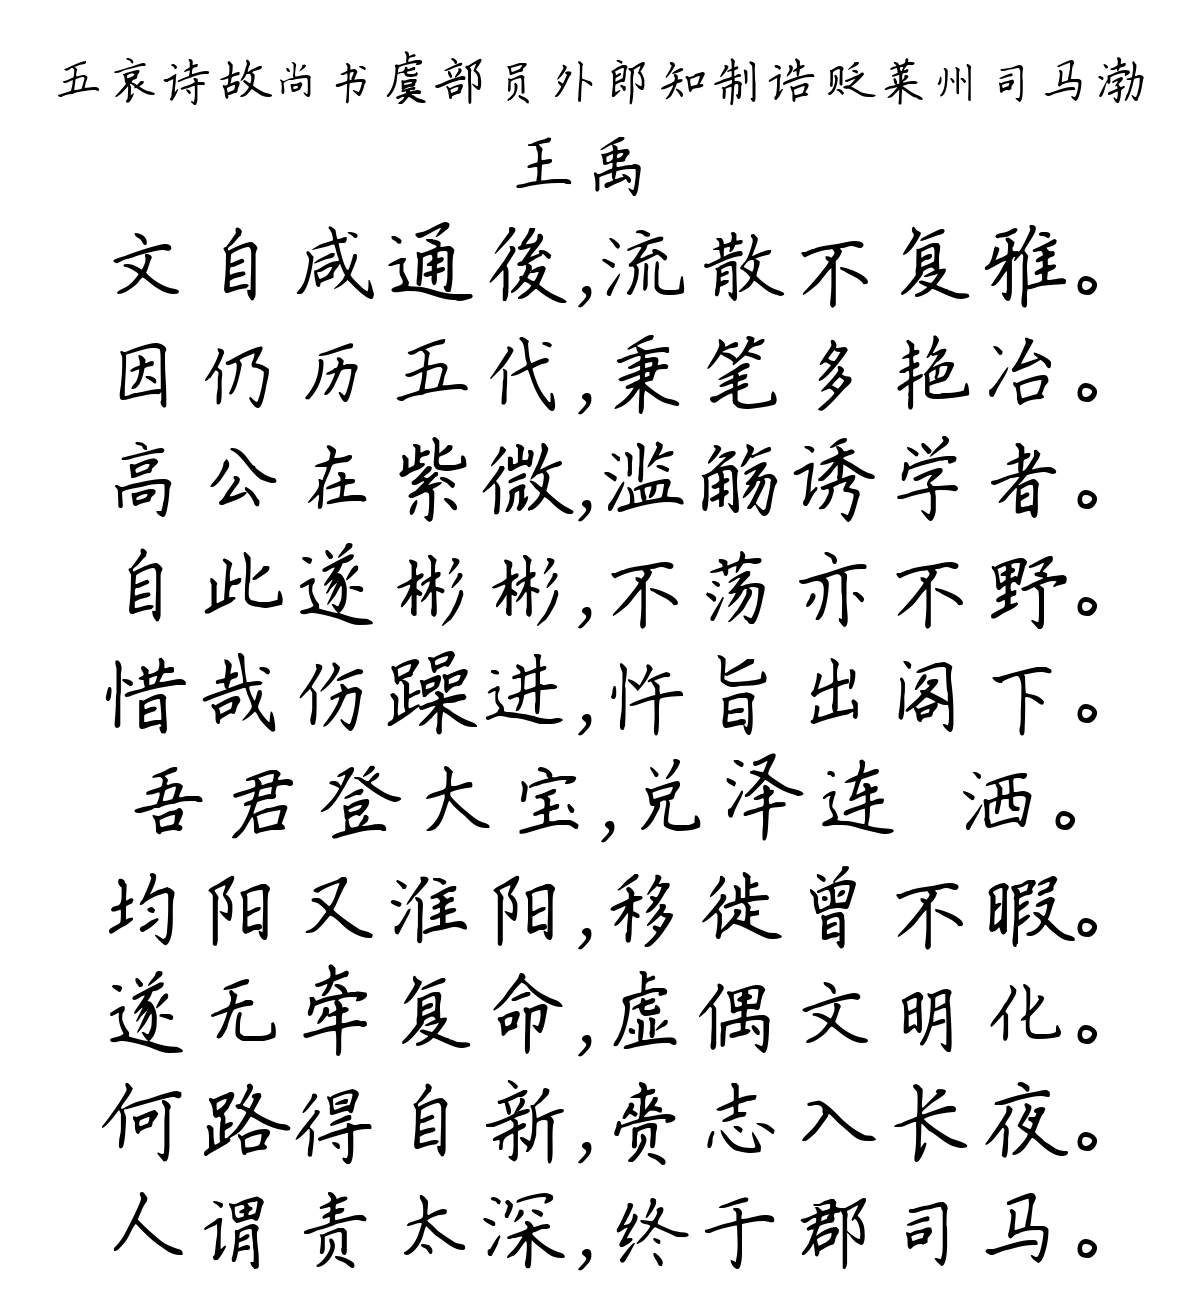 五哀诗故尚书虞部员外郎知制诰贬莱州司马渤
王禹
文自咸通後,流散不复雅。
因仍历五代,秉笔多艳冶。
高公在紫微,滥觞诱学者。
自此遂彬彬,不荡亦不野。
惜哉伤躁进,忤旨出阁下。
吾君登大宝,兑泽连 洒。
均阳又淮阳,移徙曾不暇。
遂无牵复命,虚偶文明化。
何路得自新,赍志入长夜。
人谓责太深,终于郡司马。